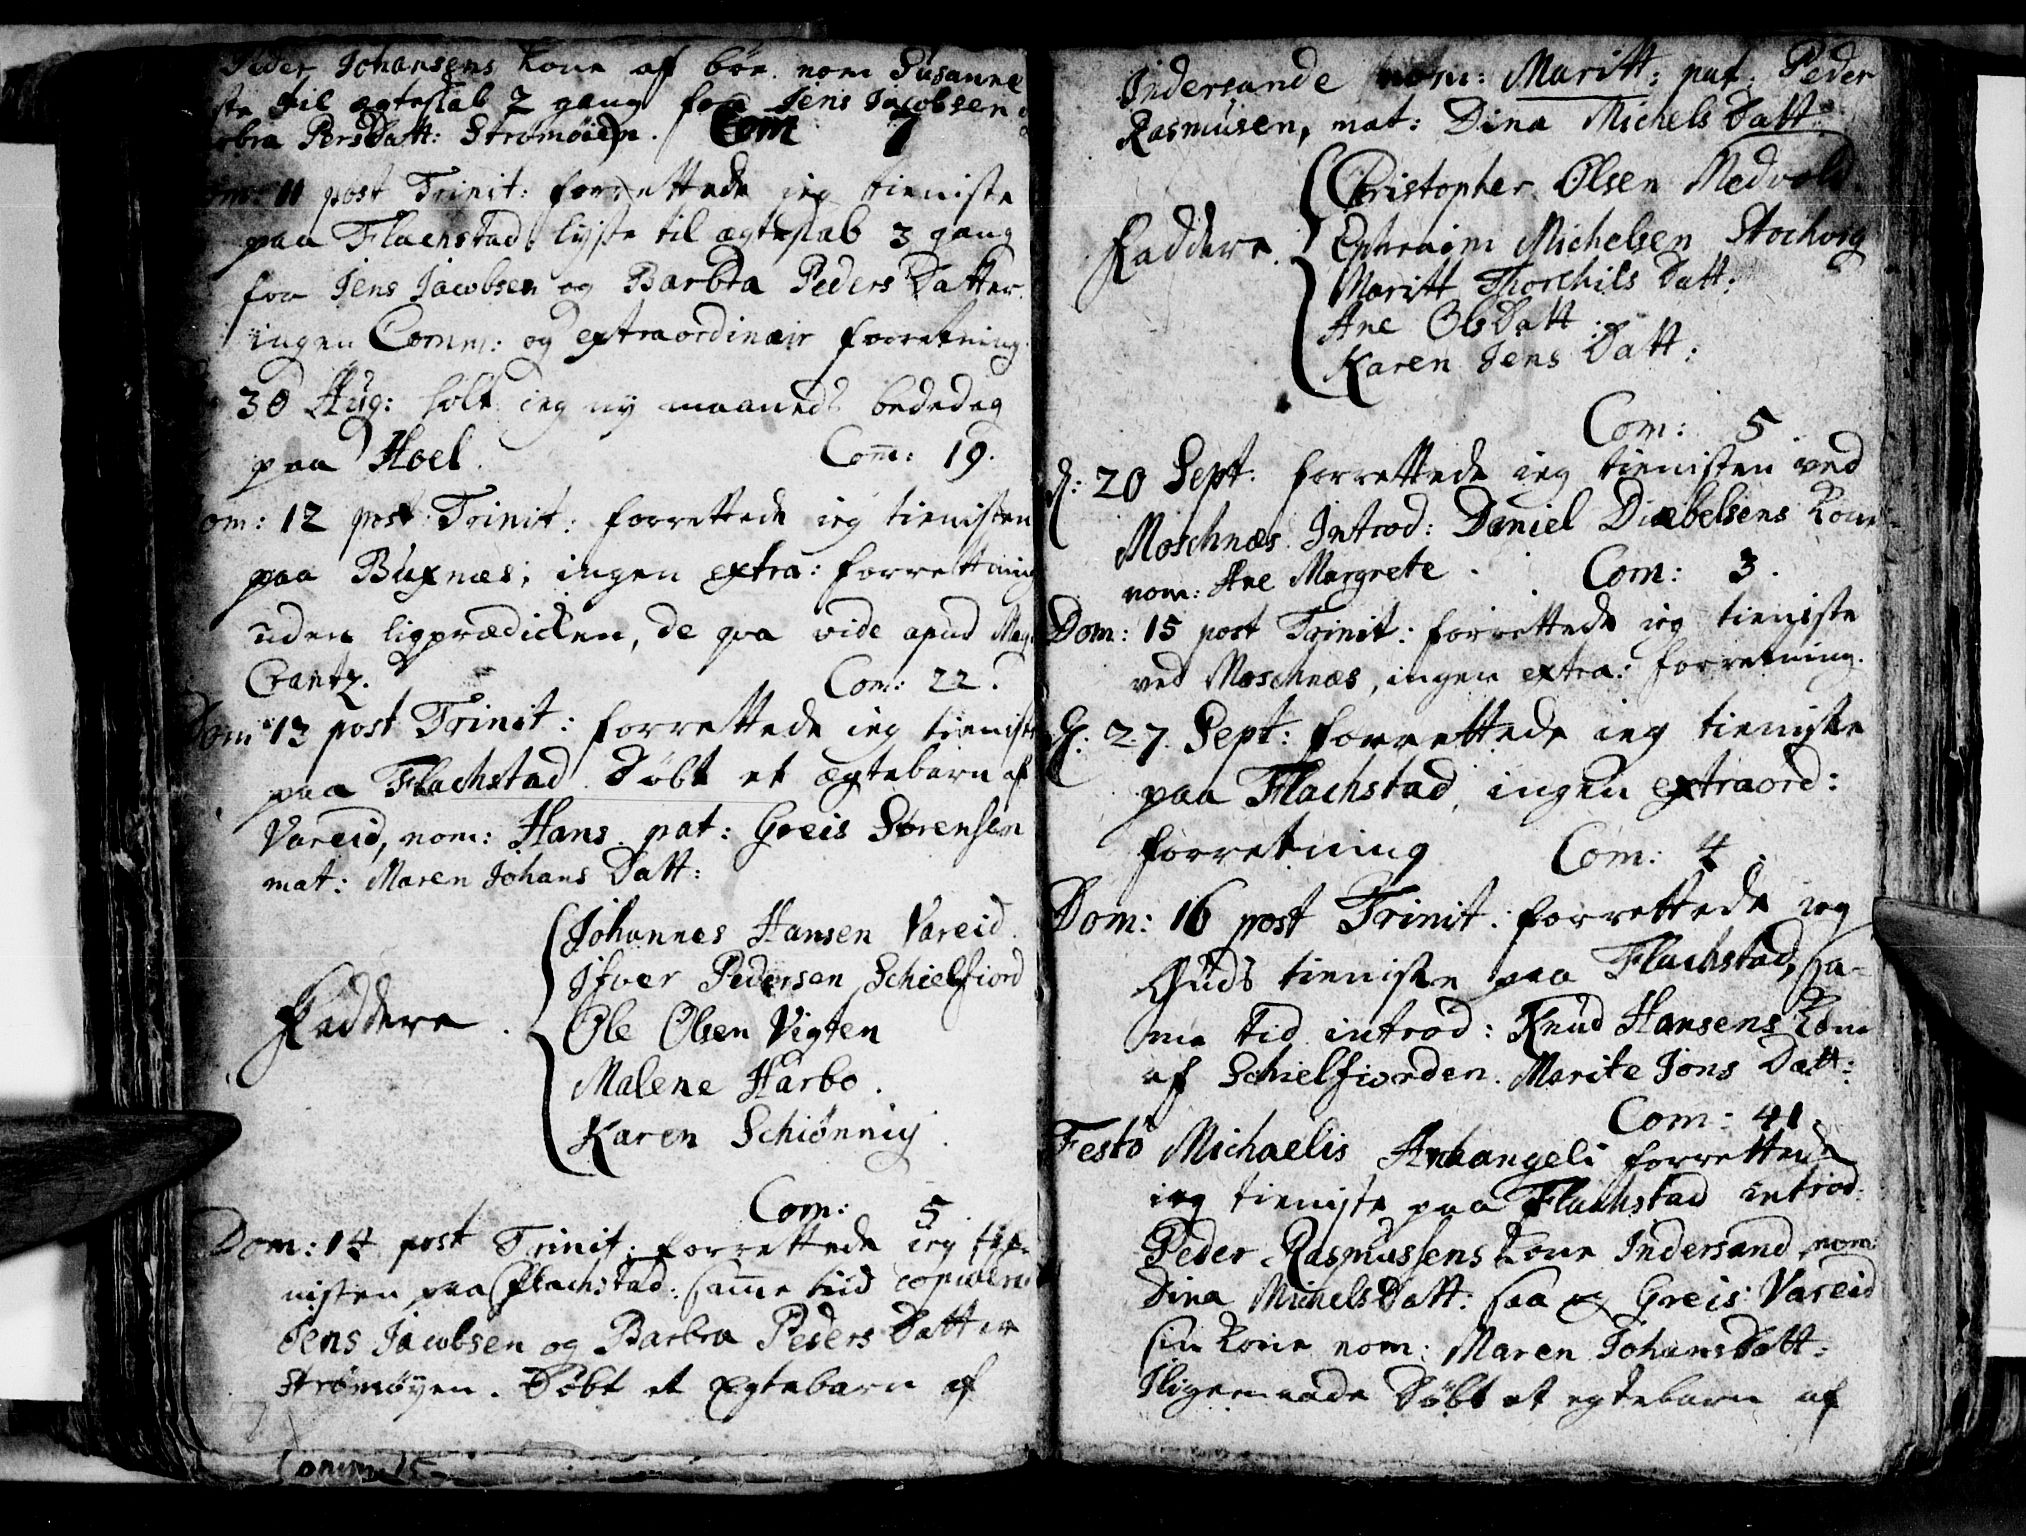 Peder Johansens Kone af Bøe nom Susanne
ste til ægteskab 2 gang for Jens Jacobsen
bra PersDatt: Strømøien. Com 7
11 post Trinit: forrettede ieg tieniste
paa Flachstad, lyste til ægteskab 3 gang
for Jens Jacobsen og Barbra Peders Datter
ingen Comm: og extraordinair forretning.
30 Aug: holt ieg ny maaneds bededag
paa Hoel. Com: 19.
om: 12 post Trinit: forrettede ieg tienisten
paa Buxnæs, ingen extra: forrettning
uden ligprædicken, de qva vide apud Mag
Crantz. Com: 22.
Dom 13 post Trinit: forrettede ieg tieniste
paa Flachstad. Døbt et ægtebarn af
Vareid, nom: Hans pat: Greis Sørensen
mat: Maren Johans Datt:
Faddere.
Johannes Hansen Vareid.
Ifver Pedersen Schielfiord
Ole Olsen Vigten
Malene Harbo.
Karen Schiønnig.
Com: 5
Dom: 14 post Trinit: forrettede ieg tie-
nisten paa Flachstad: samme tiid copulerit
Jens Jacobsen og Barbra Peders Datter
Strømøyen. Døbt et Ægtebarn af
Comm: 15
Indersande nom: Maritt: pat: Peder
Rasmusen, mat: Dina Michels Datt:
Faddere.
Christopher Olsen Nedvold.
Ephraim Michelsen Stochvig
Maritt Thorchils Datt:
Ane OlsDatt:
Karen Jens Datt:
Com: 5
d: 20 Sept. forrettede ieg tienisten ved
Moschnæs Introd: Daniel Diæbelsens Kone
nom: Ane Margrete. Com: 3.
Dom: 15 post Trinit: forrettede ieg tieniste
ved Moschnæs, ingen extra: forretning.
d. 27. Sept: forrettede ieg tieniste
paa Flachstad, ingen extraord:
forretning Com: 4.
Dom: 16 post Trinit: forrettede ieg
Guds tieniste paa Flachstad, sa-
me tid introd: Knud Hansens Kone
af Schielfiorden. Marite Jons Datt:
Com: 41.
Festo Michaelis Archangeli forrettede
ieg tieniste paa Flachstad introd:
Peder Rasmussens Kone Indersand nom:
Dina MichelsDatt: saa og Greis Vareid
sin Kone nom: Maren JohansDatt:
Iligemaade Døbt et egtebarn af